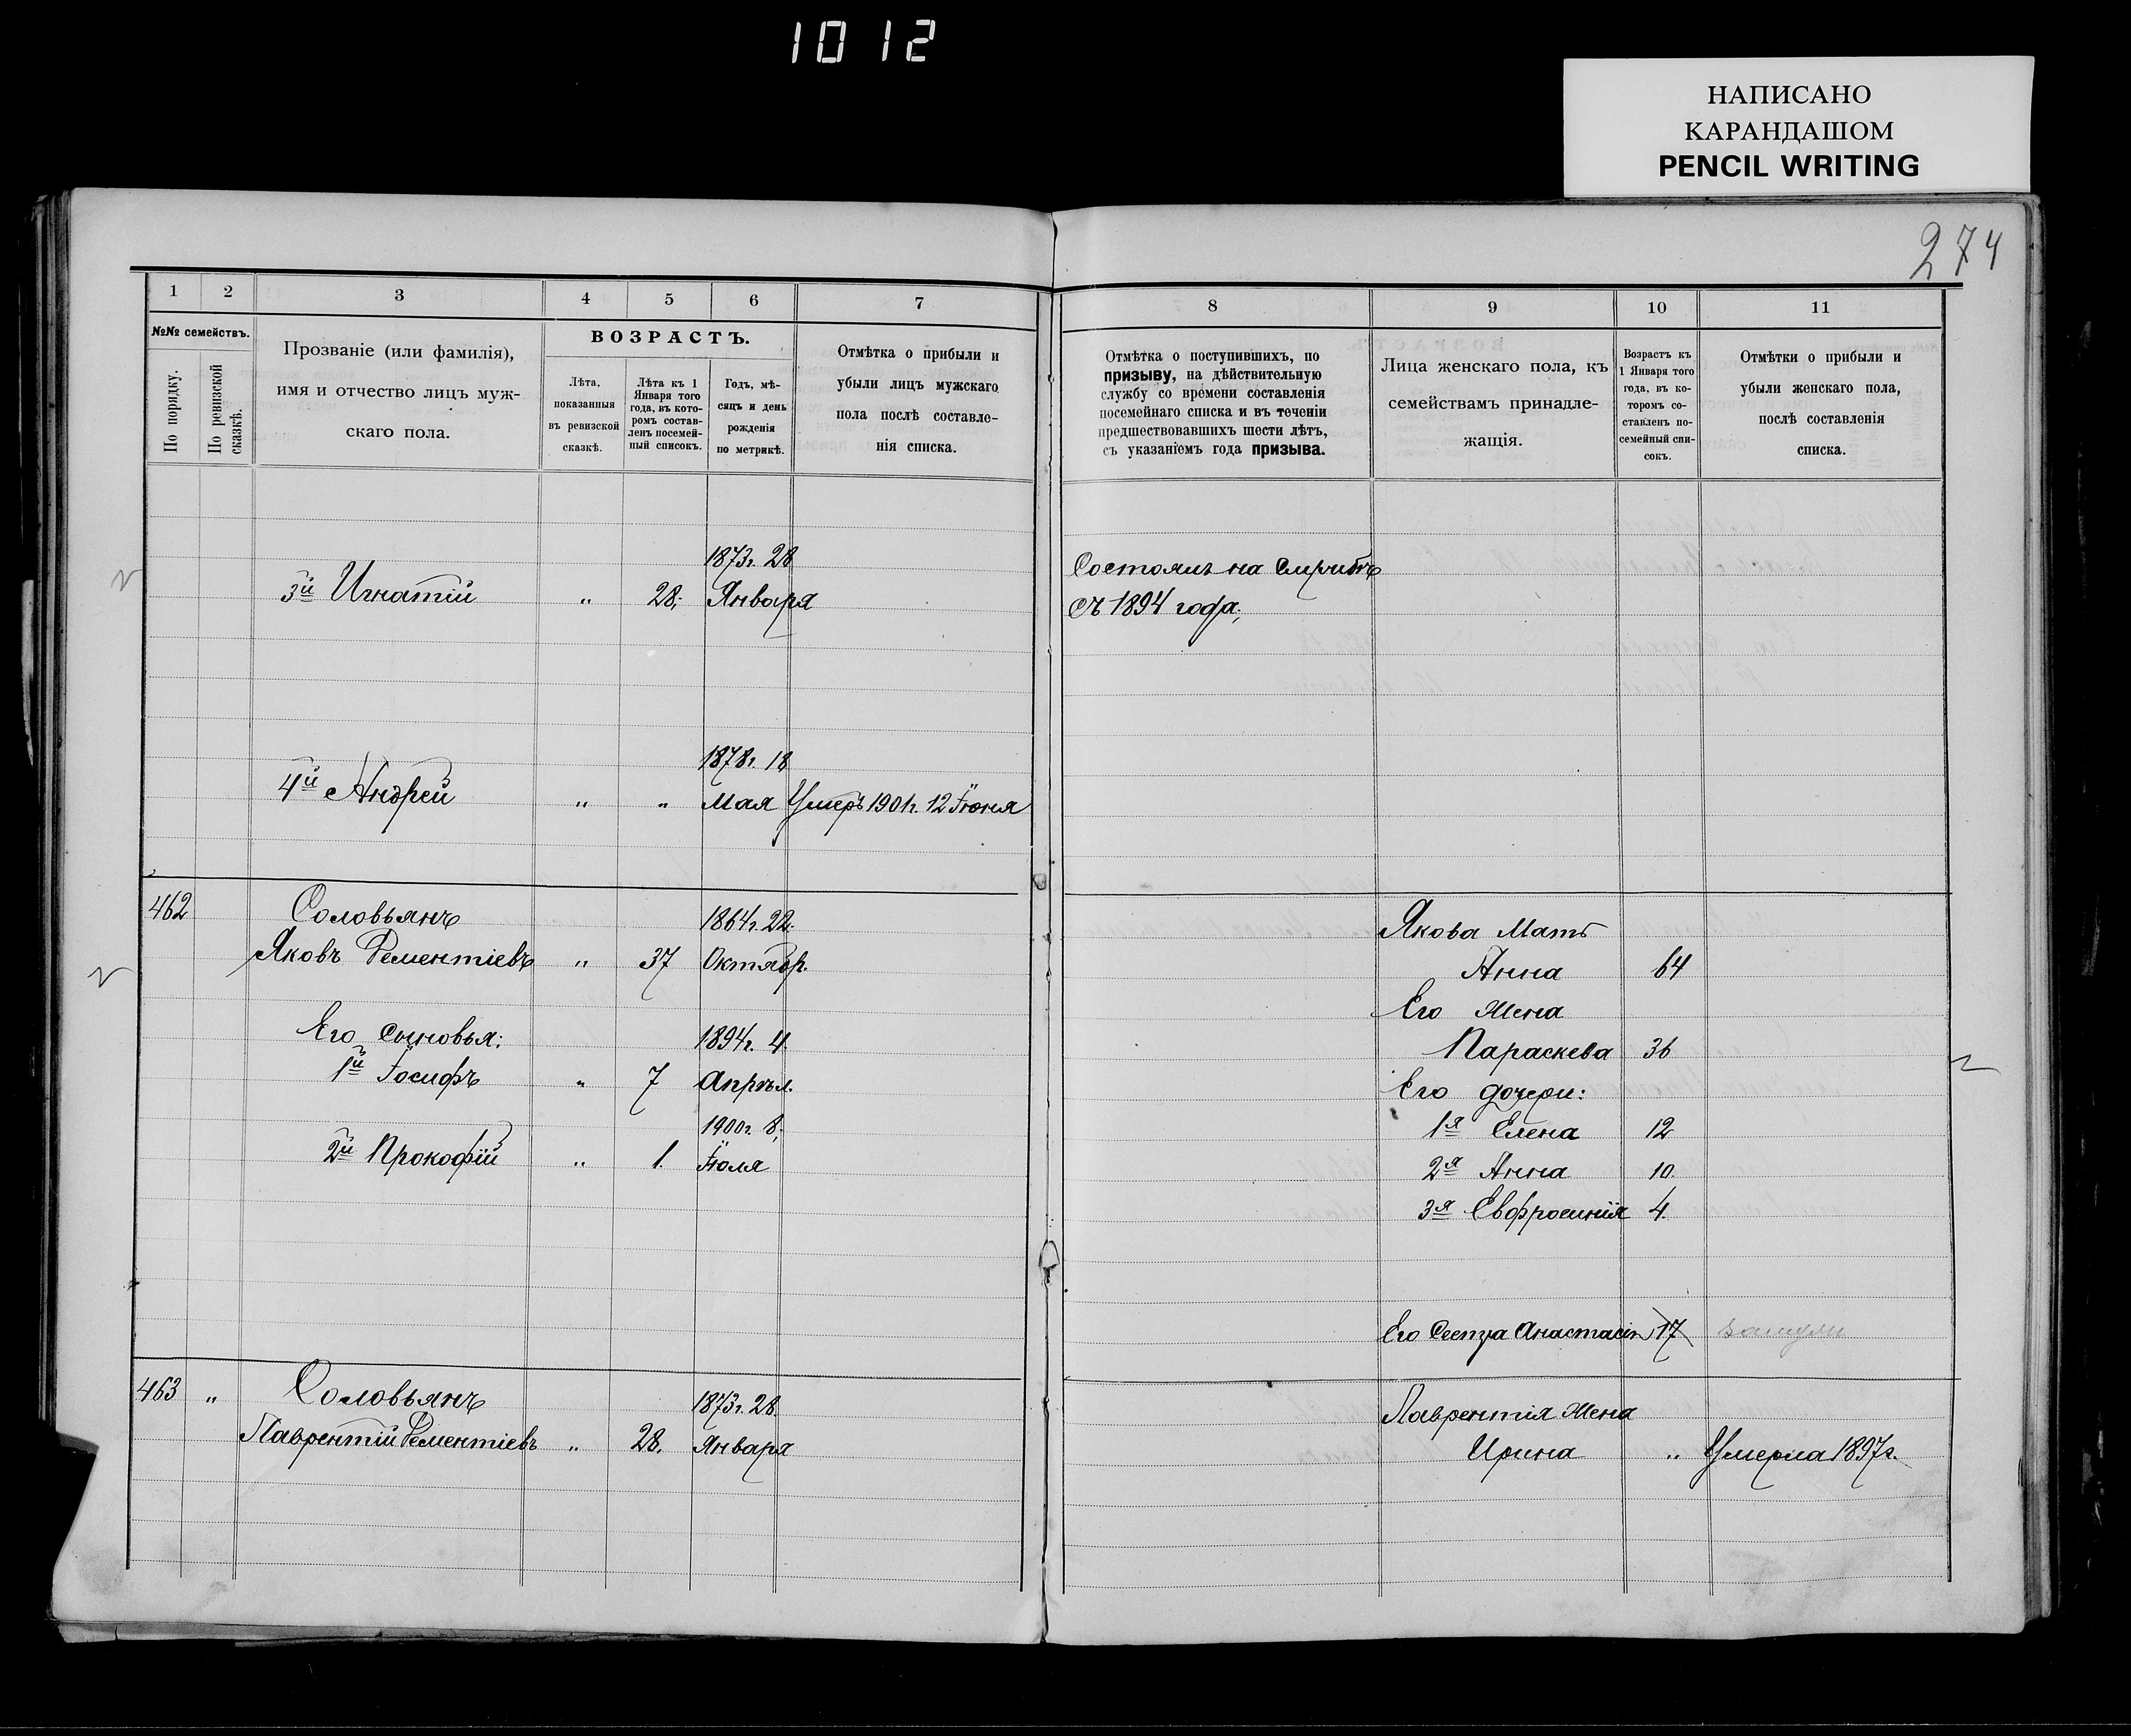 1012
НАПИСАНО
КАРАНДАШОМ
PENCIL WRITING
274
1 2 3 4 5 6 7
№№ семействъ.
По порядку.
По ревизской сказкѣ.
Прозваніе (или фамилія),
имя и отчество лицъ муж-
скаго пола.
ВОЗРАСТЪ.
Лѣта,
показанныя
въ ревизской
сказкѣ.
Лѣта къ 1
Января того
года, въ кото-
ромъ состав-
ленъ посемей-
ный списокъ.
Годъ, мѣ-
сяцъ и день
рожденія
по метрикѣ.
Отмѣтка о прибыли и
убыли лицъ мужскаго
пола послѣ составле-
нія списка.
1873г. 28
3й Игнатій " 28; Января
1878г. 18
4й Андрей " " Мая Умеръ 1901г. 12 Іюня
462 Соловьянъ 1864г. 22.
Яковъ Дементіевъ " 37 Октябр.
Его сыновья: 1894г. 4.
1й Іосифъ " 7 Апрѣл.
1900г. 8;
2й Прокофій " 1. Іюля
463 " Соловьянъ 1873г. 28.
Лаврентій Дементіевъ " 28. Января
8 9 10 11
Отмѣтка о поступившихъ, по
призыву, на дѣйствительную
службу со времени составленія
посемейнаго списка и въ теченіи
предшествовавшихъ шести лѣтъ,
съ указаніемъ года призыва.
Лица женскаго пола, къ
семействамъ принадле-
жащія.
Возрастъ къ
1 Января того
года, въ ко-
торомъ со-
ставленъ по-
семейный спи-
сокъ.
Отмѣтки о прибыли и
убыли женскаго пола,
послѣ составленія
списка.
Состоялъ на службѣ
съ 1894 года;
Якова Мать
Анна 64
Его Жена
Параскева 36
Его дочери:
1я Елена 12
2я Анна 10.
3я Евфросинія 4.
Его Сестра Анастасія 17
Лаврентія Жена
Ирина " Умерла 1897г.